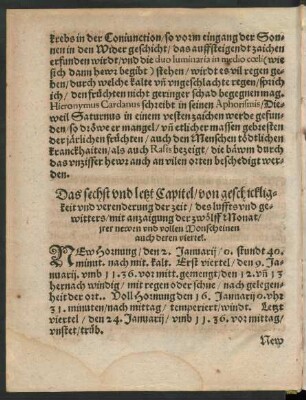 krebs in der Coniunction/so vorm eingang der Son-
nen in den Wider geschicht/das auffsteigendt zaichen
erfunden wirdt/vnd die duo luminaria in medio cœli(wie
sich dann hewr begibt) stehen/wirdt es vil regen ge-
ben/durch welche kalte vñ vngeschlachte regen/sprich
ich/den früchten nicht geringer schad begegnen mag.
Hieronymus Cardanus schreibt in seinen Aphorismis/Die-
weil Saturnus in einem vesten zaichen werde gefun-
den/so dröwe er mangel/vñ etlicher massen gebresten
der järlichen früchten/auch den Menschen tödtlichen
kranckhaiten/als auch Rasis bezeigt/die bäwm durch
das vnziffer hewr auch an vilen orten beschedigt wer-
den.
Das sechst vnd letzt Capitel/von geschicklig-
keit vnd verenderung der zeit/des luffts vnd ge-
witters/mit anzaigung der zwölff Monat/
jrer newen vnd vollen Monscheinen
auch deren viertel.
NEw Hornung/den 2. Januarij/0. stundt 40.
minut. nach mit. kalt. Erst viertel/den 9. Ja-
nuarij. vmb 11.36. vor mitt. gemengt/den 12. vñ 13
hernach windig/mit regen oder schne/nach gelegen-
heit der ort.. Voll Hornung den 16. Januarij 0. vhr
31. minuten/nach mittag/temperiert/windt. Letzt
viertel/den 24. Januarij/vmb 11.36. vor mittag/
vnstet/trüb.
New